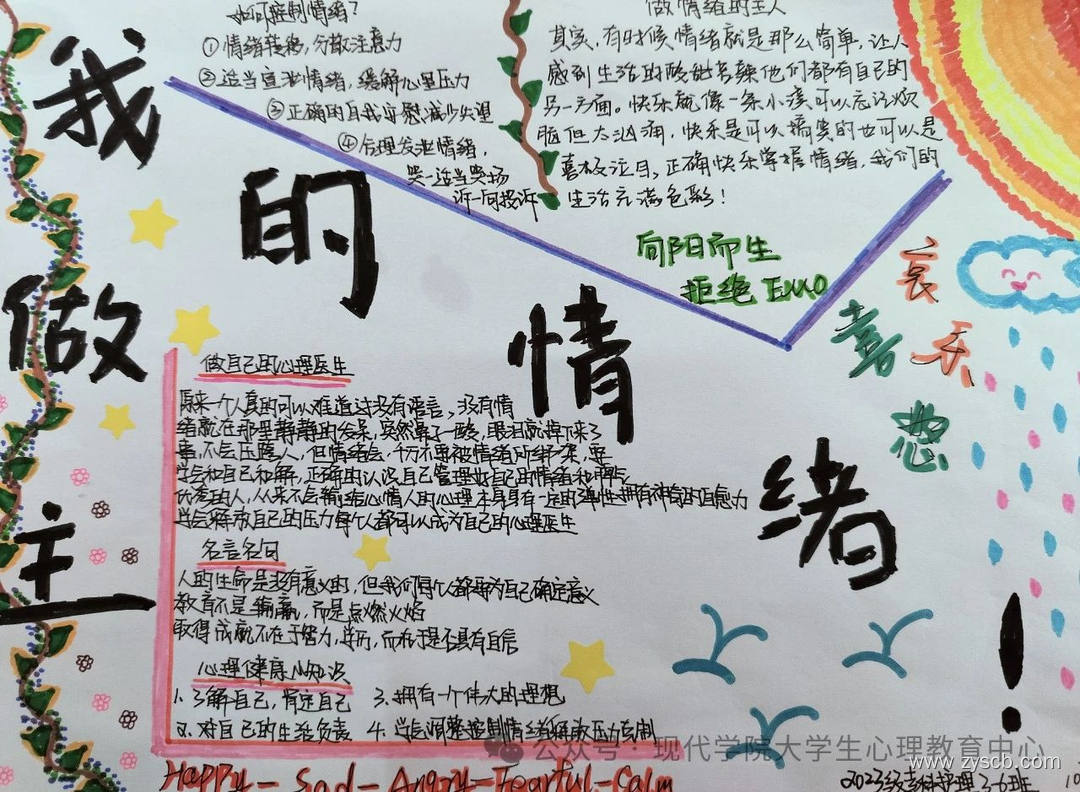 如何控制情绪?
①情绪转移,分散注意力
②适当宣泄情绪,缓解心里压力
③正确的自我安慰,减少失望
④合理发泄情绪,
哭一适当哭场
诉一向投诉
做情绪的主人
其实,有时候情绪就是那么简单,让人
感到生活的酸甜苦辣他们都有自己的
另一方面。快乐就像一条小溪可以忘记烦
脑但大汹涌,快乐是可以搞笑的也可以是
喜极泣目,正确快乐掌握情绪,我们的
生活充满色彩!
向阳而生
拒绝EMO
哀
喜 乐
怒
我
的
情
绪
!
做
主
做自己的心理医生
原来一个人真的可以难道过没有语言,没有情
绪就在那里静静的发呆,突然鼻子一酸,眼泪就掉下来了
事,不会压跨人,但情绪会,千万不要被情绪所绑架,要
学会和自己和解,正确的认识自己管理好自己的情绪和
的人,从来不会输给心情人的心理本身具有一定的弹性拥有神奇的自愈力
学会释放自己的压力每个人都可以成为自己的心理医生
名言名句
人的生命是没有意义的,但我们每个人都要为自己确定意义
教育不是输赢,而是点燃火焰
取得成就不在于努力,学历,而在于是否具有自信
心理健康小知识
1.了解自己,肯定自己 3.拥有一个伟大的理想
2.对自己的生活负责 4.学会调整控制情绪释放压力克制
Happy-Sad-Angry-Fearful-Calm
公众号·现代学院大学生心理教育中心
www.zyscb.com
2023级专科护理3-6班